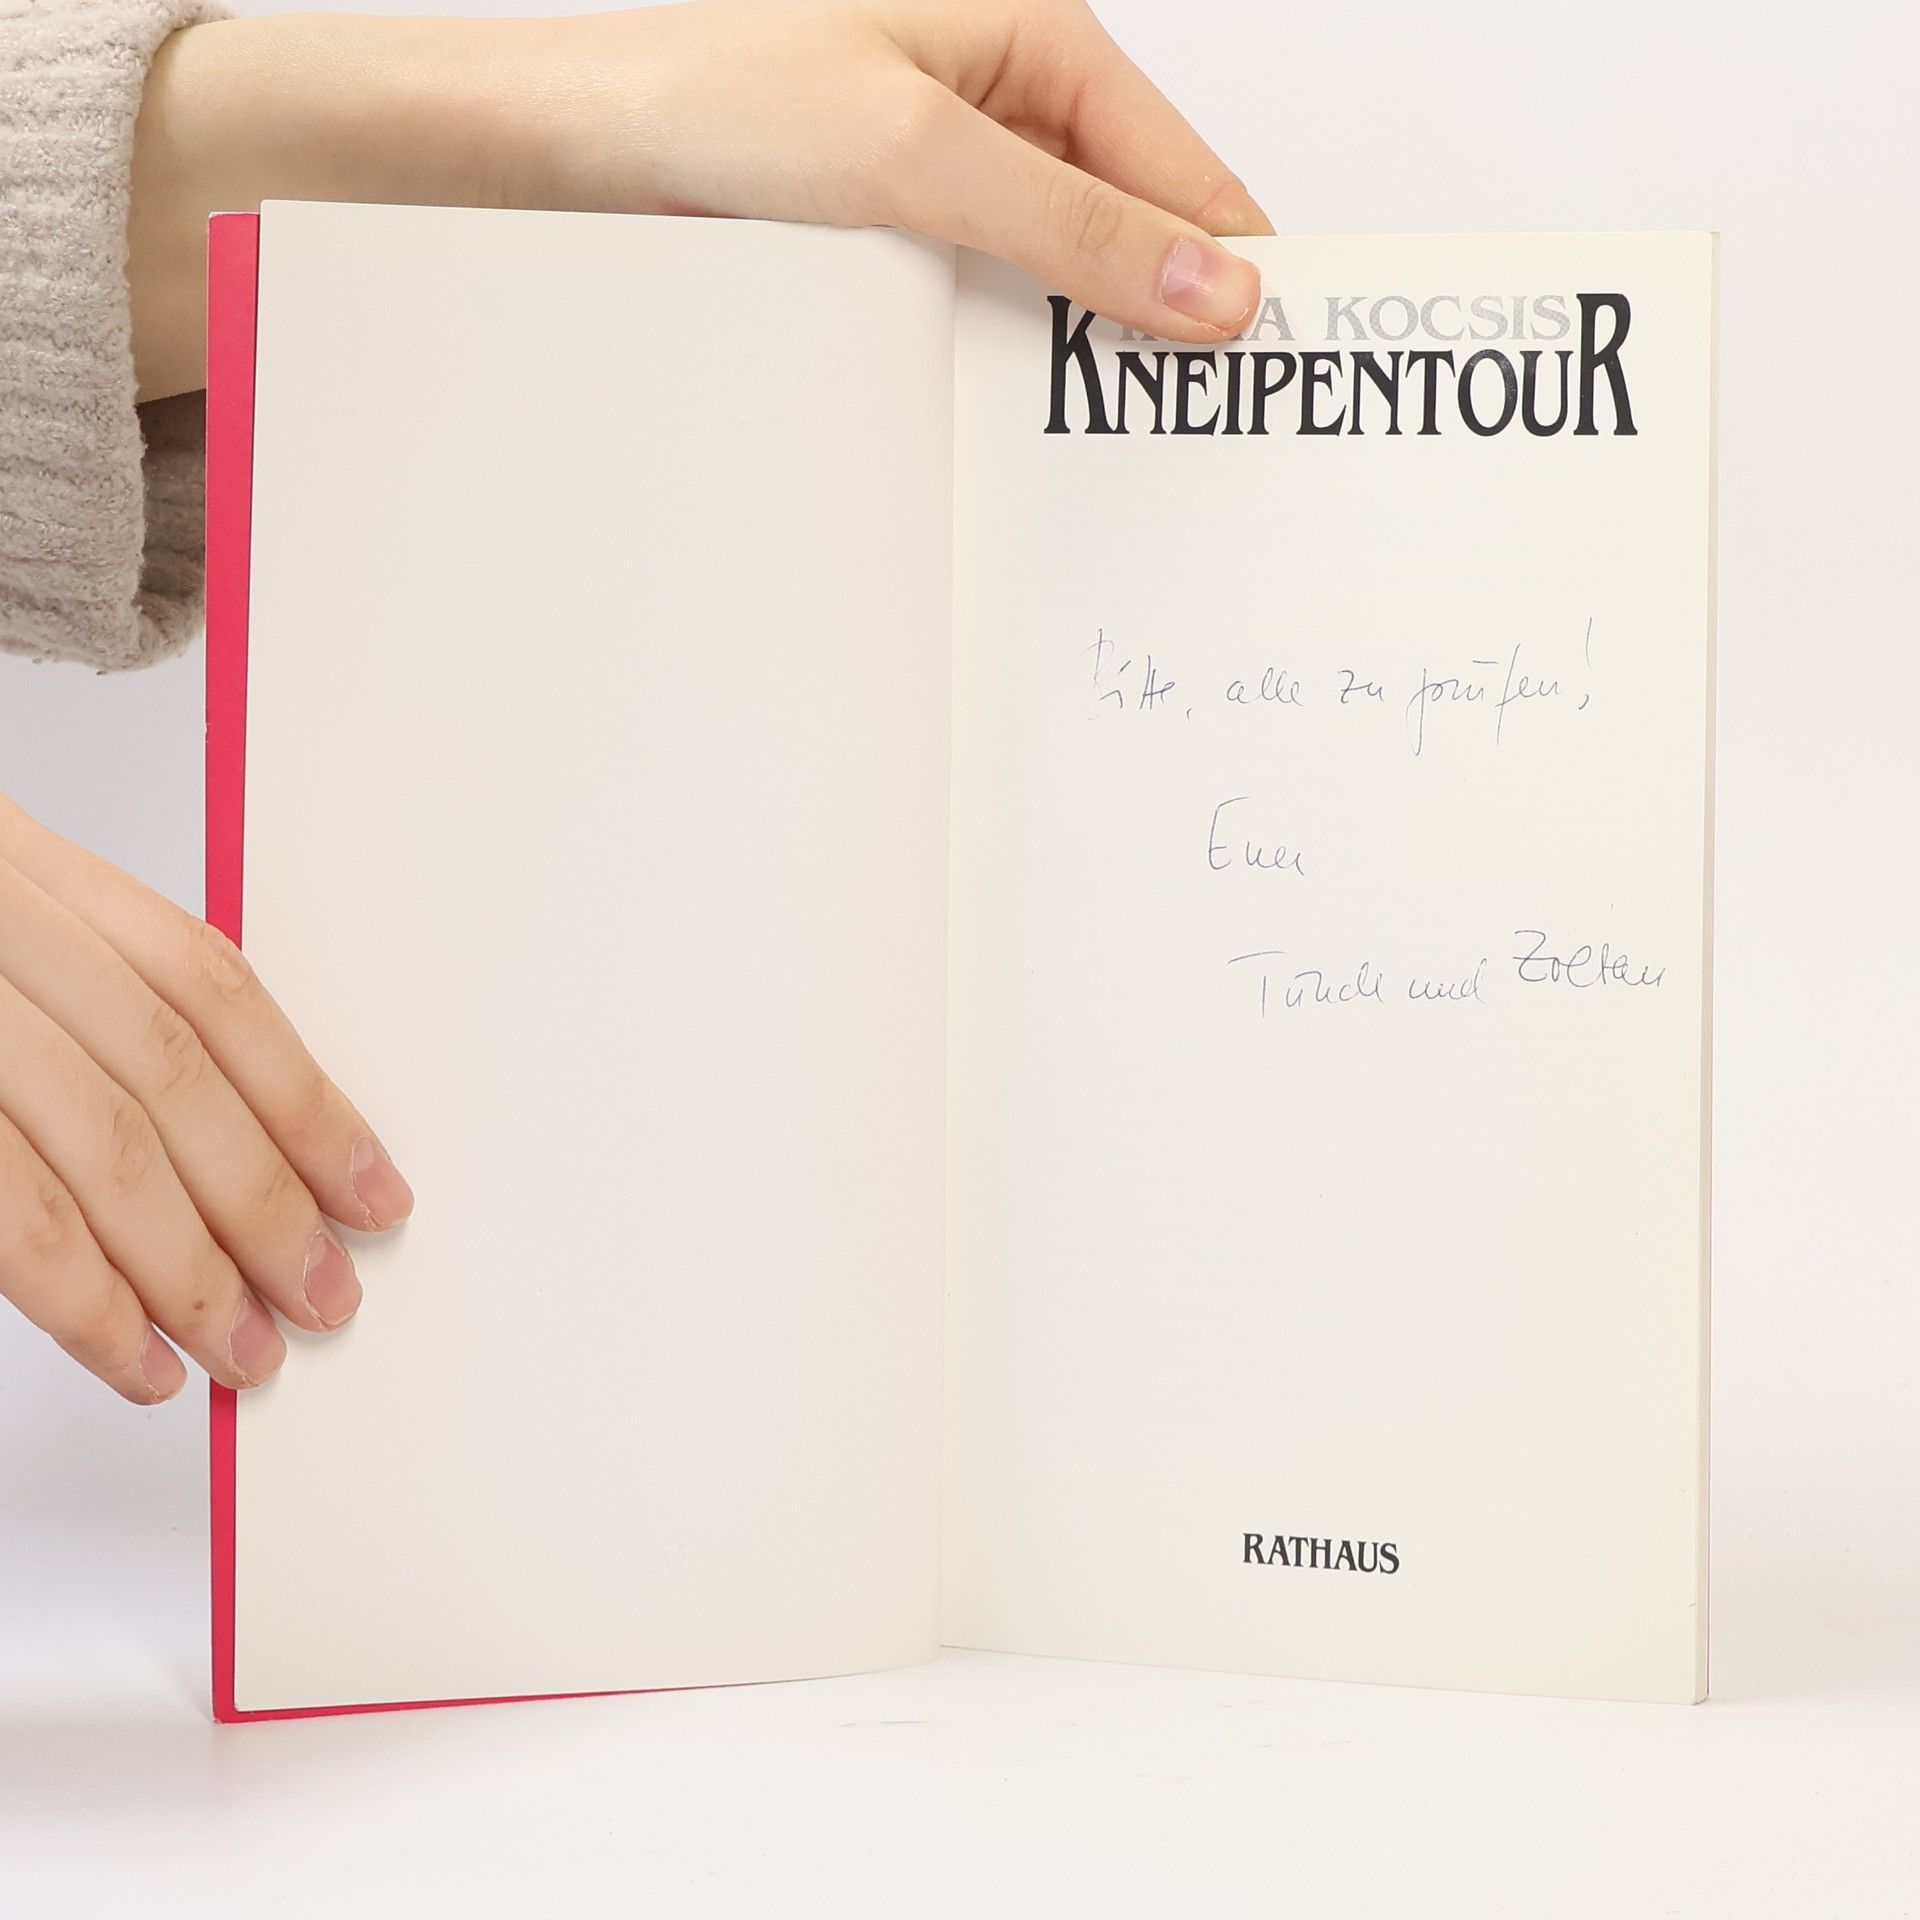 KOCSIS
KNEIPENTOUR
Bitte, alle zu prüfen!
Euer
Tünde und Zoltan
RATHAUS